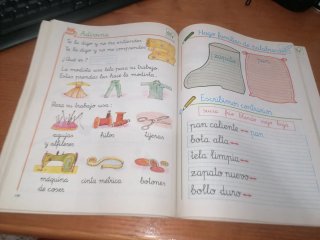 Adivina
Te la digo y no me entiendes.
Te la digo y no me comprendes.
¿Qué es?
La modista usa tela para su trabajo.
Estas prendas las hace la modista.
Para su trabajo usa:
agujas
y alfileres
hilos
tijeras
máquina
de coser
cinta métrica
botones
Hago familias de palabras
zapato
Escribimos contrarios
sucia frío blando viejo baja
pan caliente pan
bota alta
tela limpia
zapato nuevo
bollo duro